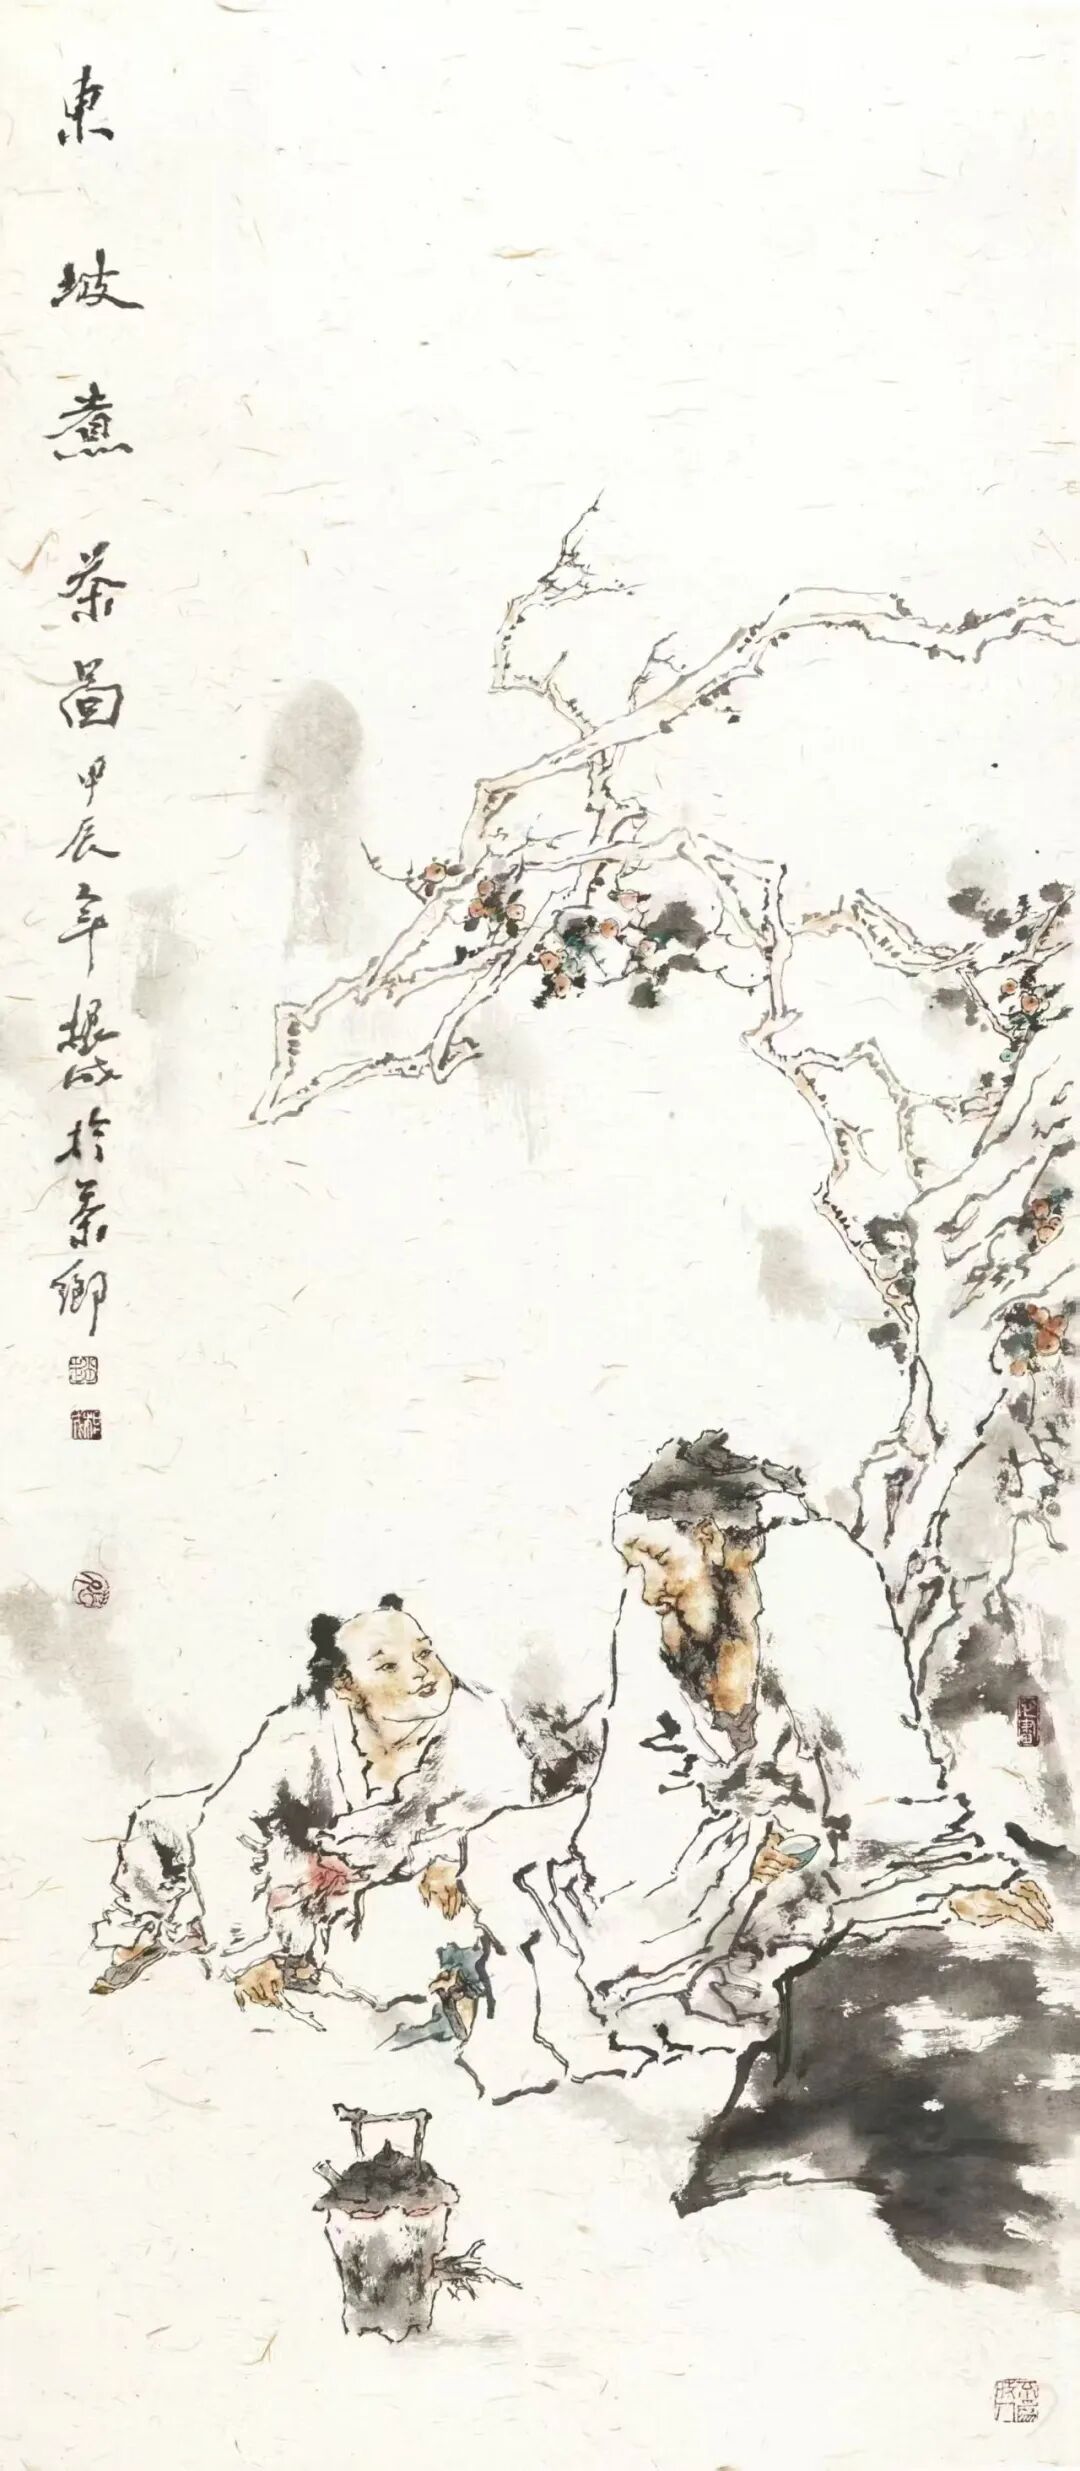 東坡煮茶圖甲辰年根成於茶鄉